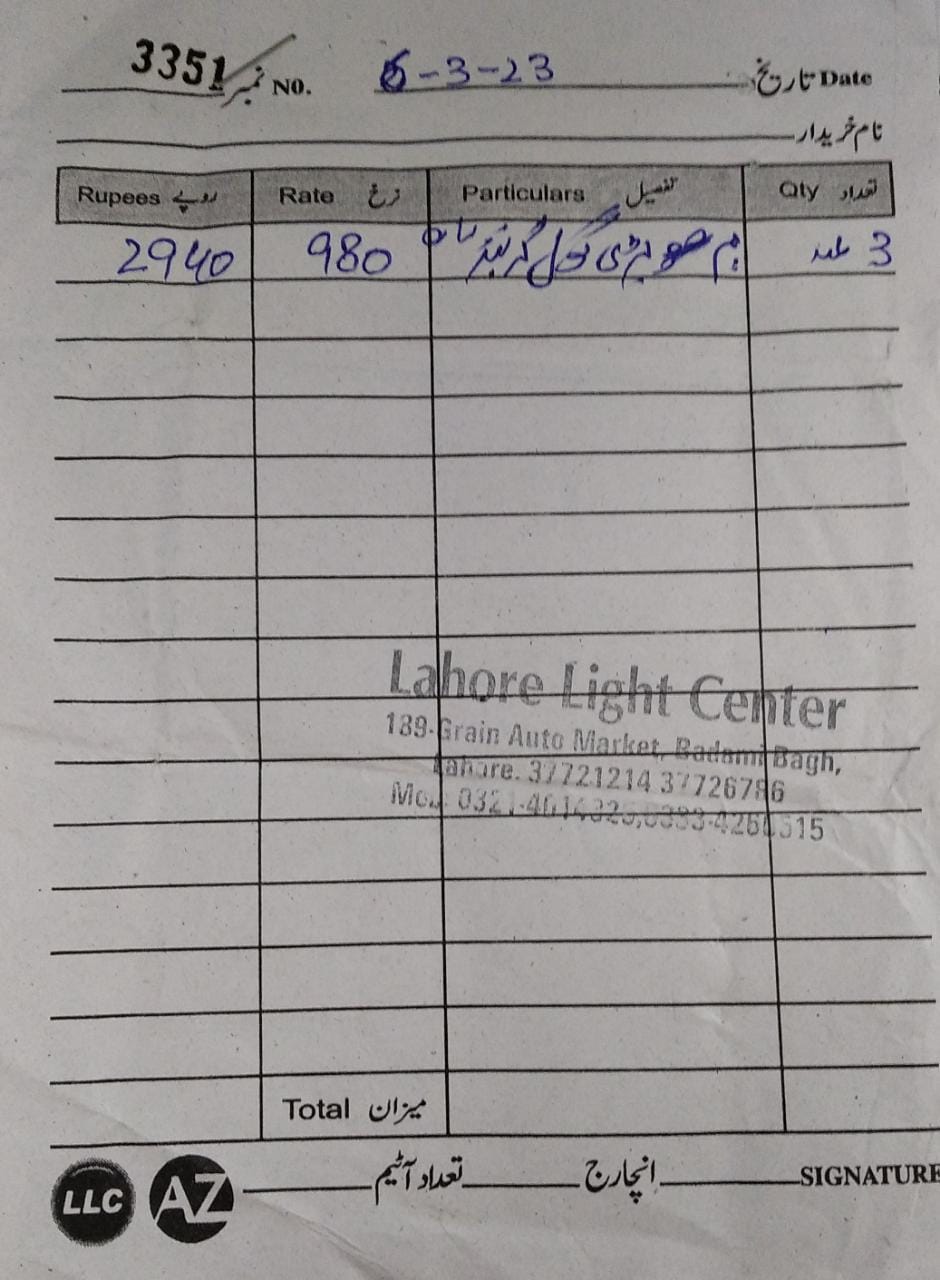 3351 نمبر NO. 6-3-23 تاریخ Date
نام خریدار
Rupees روپے Rate نرخ Particulars تفصیل Qty تعداد
2940 980 گول 3 عدد
Lahore Light Center
189-Grain Auto Market, Badami Bagh,
Lahore. 37721214 37726786
Total میزان
LLC AZ تعداد آئیٹم انچارج SIGNATURE